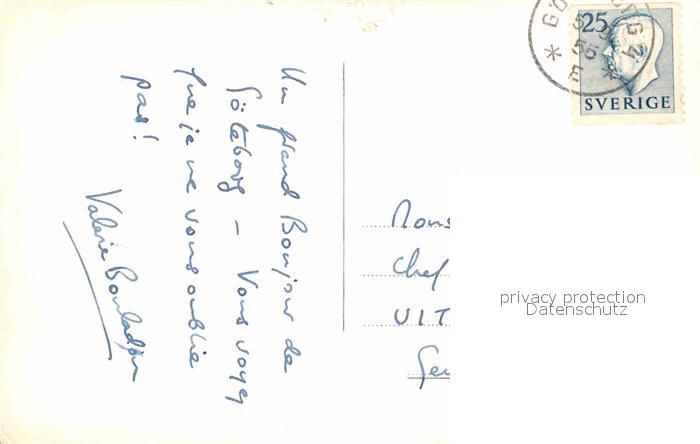 Un grand Bonjour de
Göteborg – Vous voyez
que je ne vous oublie
pas!
Valerie
GÖ
RG
5
55
E
25
SVERIGE
Mons
Chef
UIT
Ge
privacy protection
Datenschutz